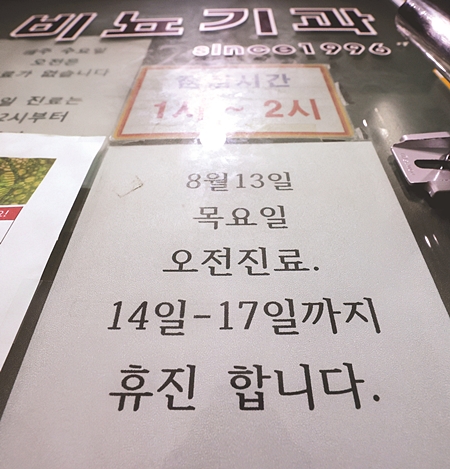 비뇨기과
since1996
매주 수요일
오전은
료가 없습니다
일 진료는
2시부터
점심시간
1시~ 2시
8월13일
목요일
오전진료.
14일-17일까지
휴진 합니다.